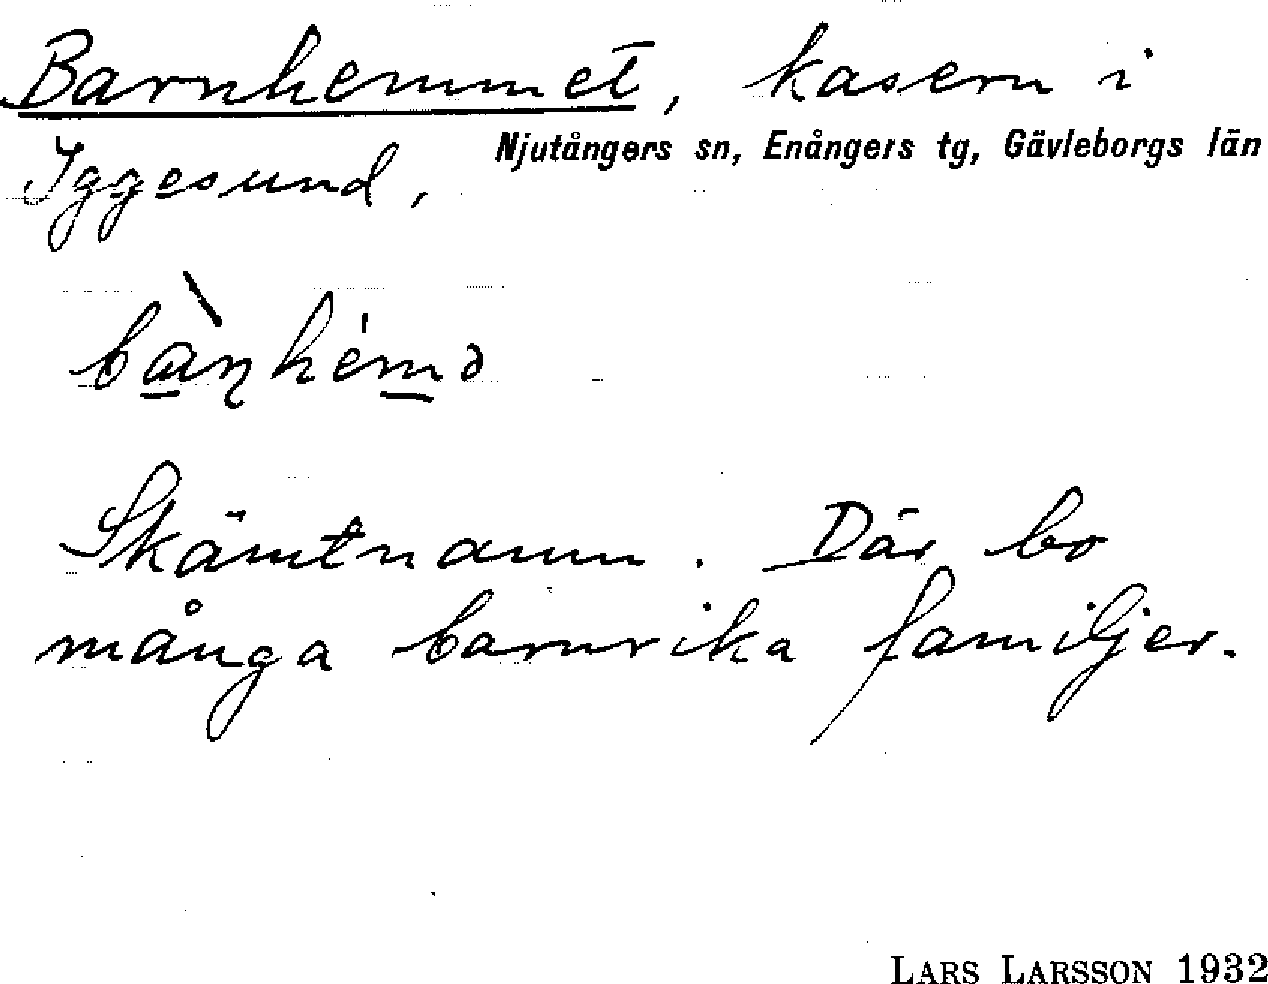 Barnhemmet, kasern i
Njutångers sn, Enångers tg, Gävleborgs län
Iggesund,
bà̱ɳhém̱ə
Skämtnamn. Där bo
många barnrika familjer.
LARS LARSSON 1932